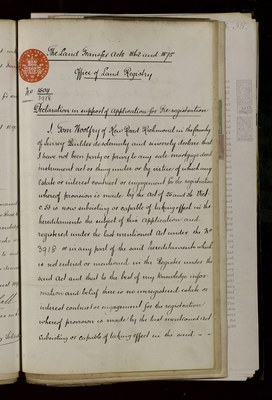 The Land Transfer Acts 1862 and 1875
Office of Land Registry
No
3918
Declaration in support of Application for Re-registration
I Tom Woolfry of Kew Road Richmond in the County
of Surrey Builder do solemnly and sincerely declare that
I have not been party or privy to any sale mortgage deed
instrument act or thing under or by virtue of which any
Estate or interest contract or engagement for the registration
whereof provision is made by the Act of 25 and 26 Vict.
c 53 is now subsisting or capable of taking effect in the
hereditaments the subject of this application and
registered under the last mentioned Act under the No
3918 or in any part of the said hereditaments which
is not entered or mentioned in the Register under the
said Act and that to the best of my knowledge infor-
mation and belief there is no unregistered estate or
interest contract or engagement for the registration
whereof provision is made by the last mentioned Act
subsisting or capable of taking effect in the said